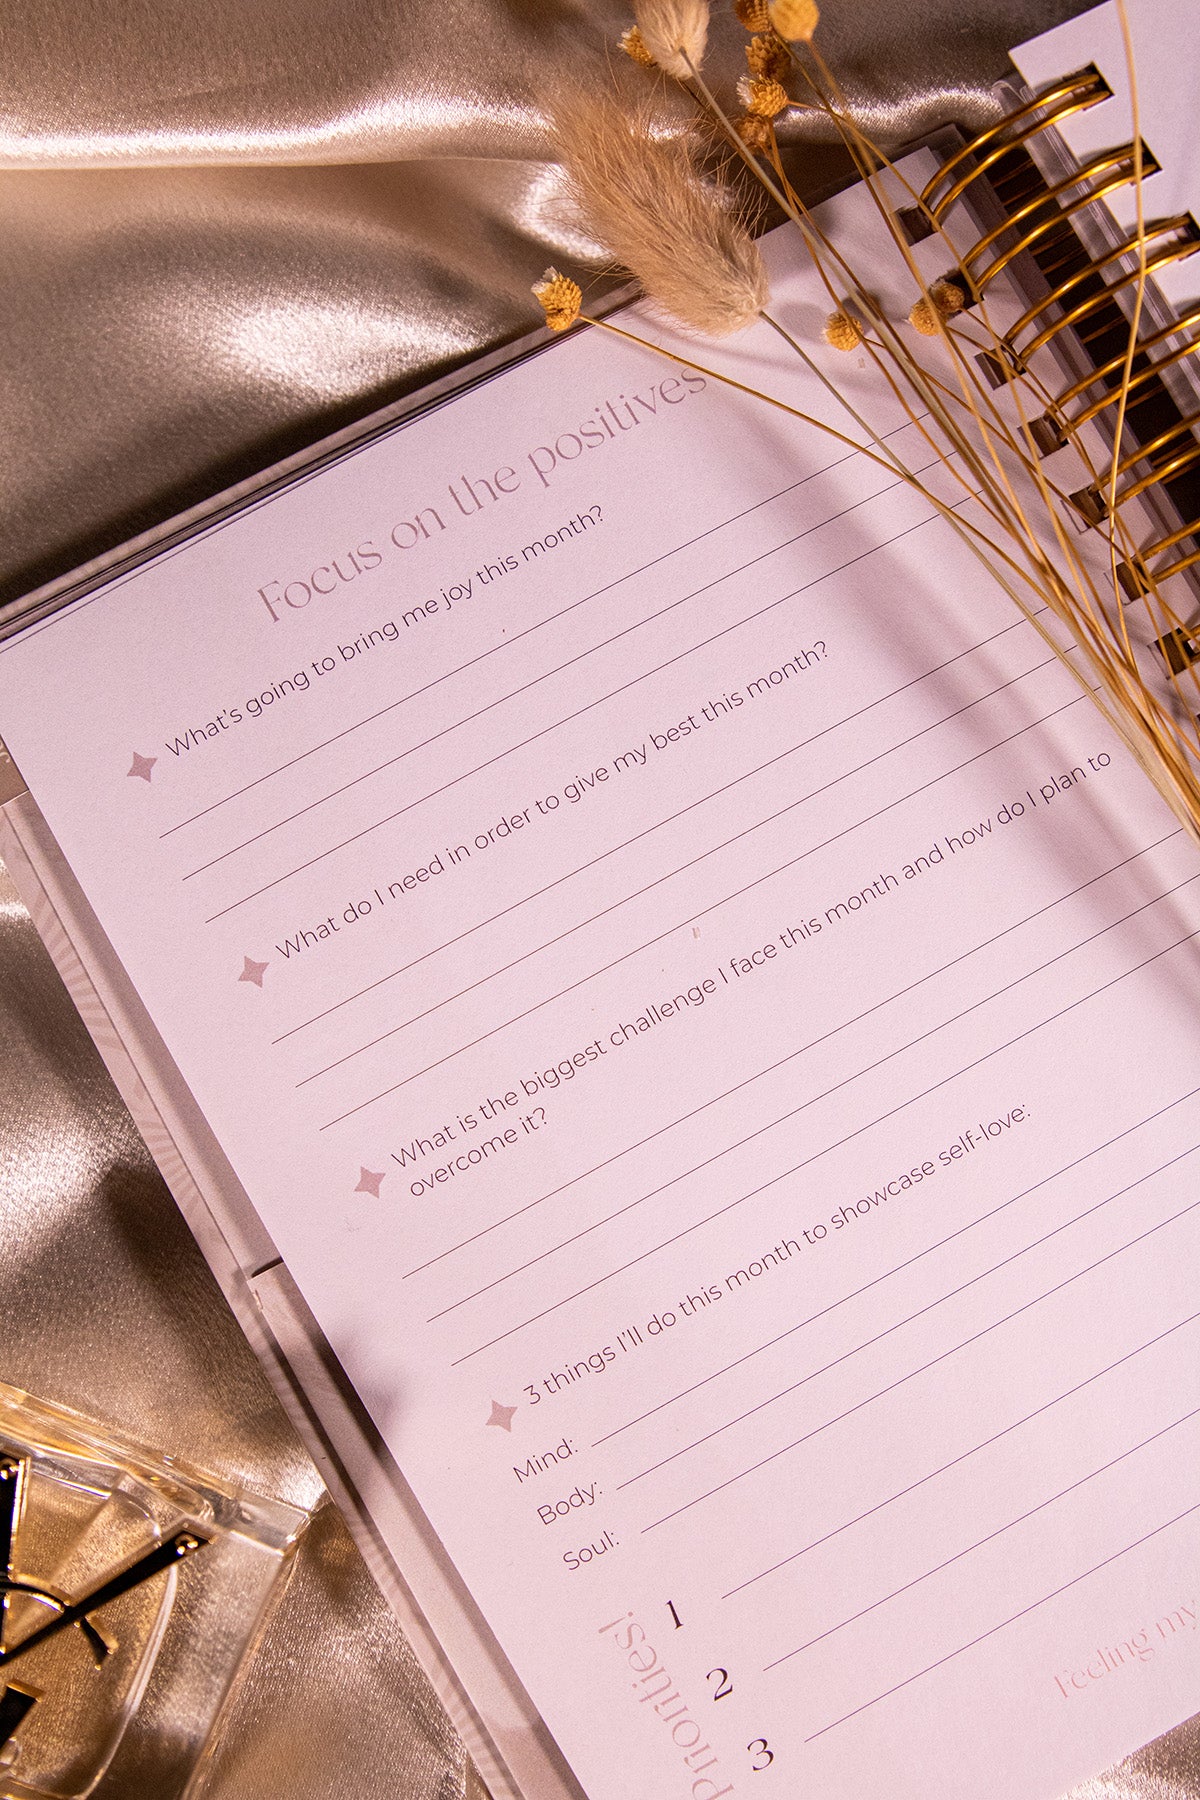 Focus on the positives
What's going to bring me joy this month?
What do I need in order to give my best this month?
What is the biggest challenge I face this month and how do I plan to
overcome it?
3 things I'll do this month to showcase self-love:
Mind:
Body:
Soul:
Priorities!
1
2
3
Feeling my